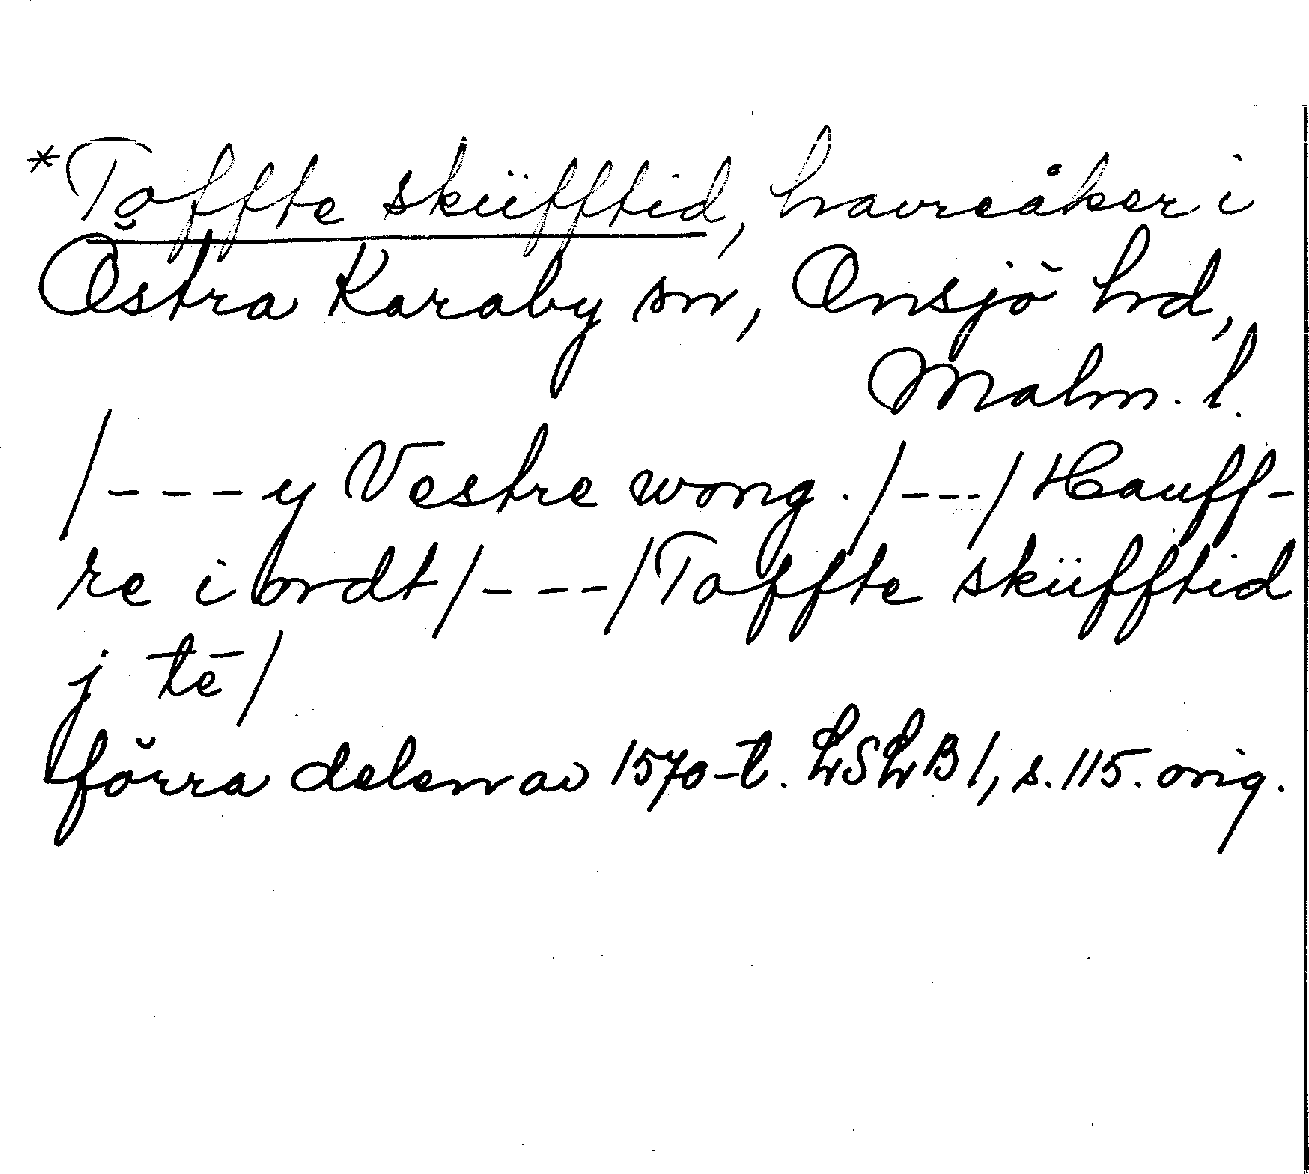 *Toffte sküfftid, havreåker i
Östra Karaby sn, Onsjö hd,
Malm. l.
/---y Vestre wong./---/Hauff-
re i ordt/---/Toffte sküfftid
j tē/
förra delen av 1570-t. LSLB1, s.115. orig.